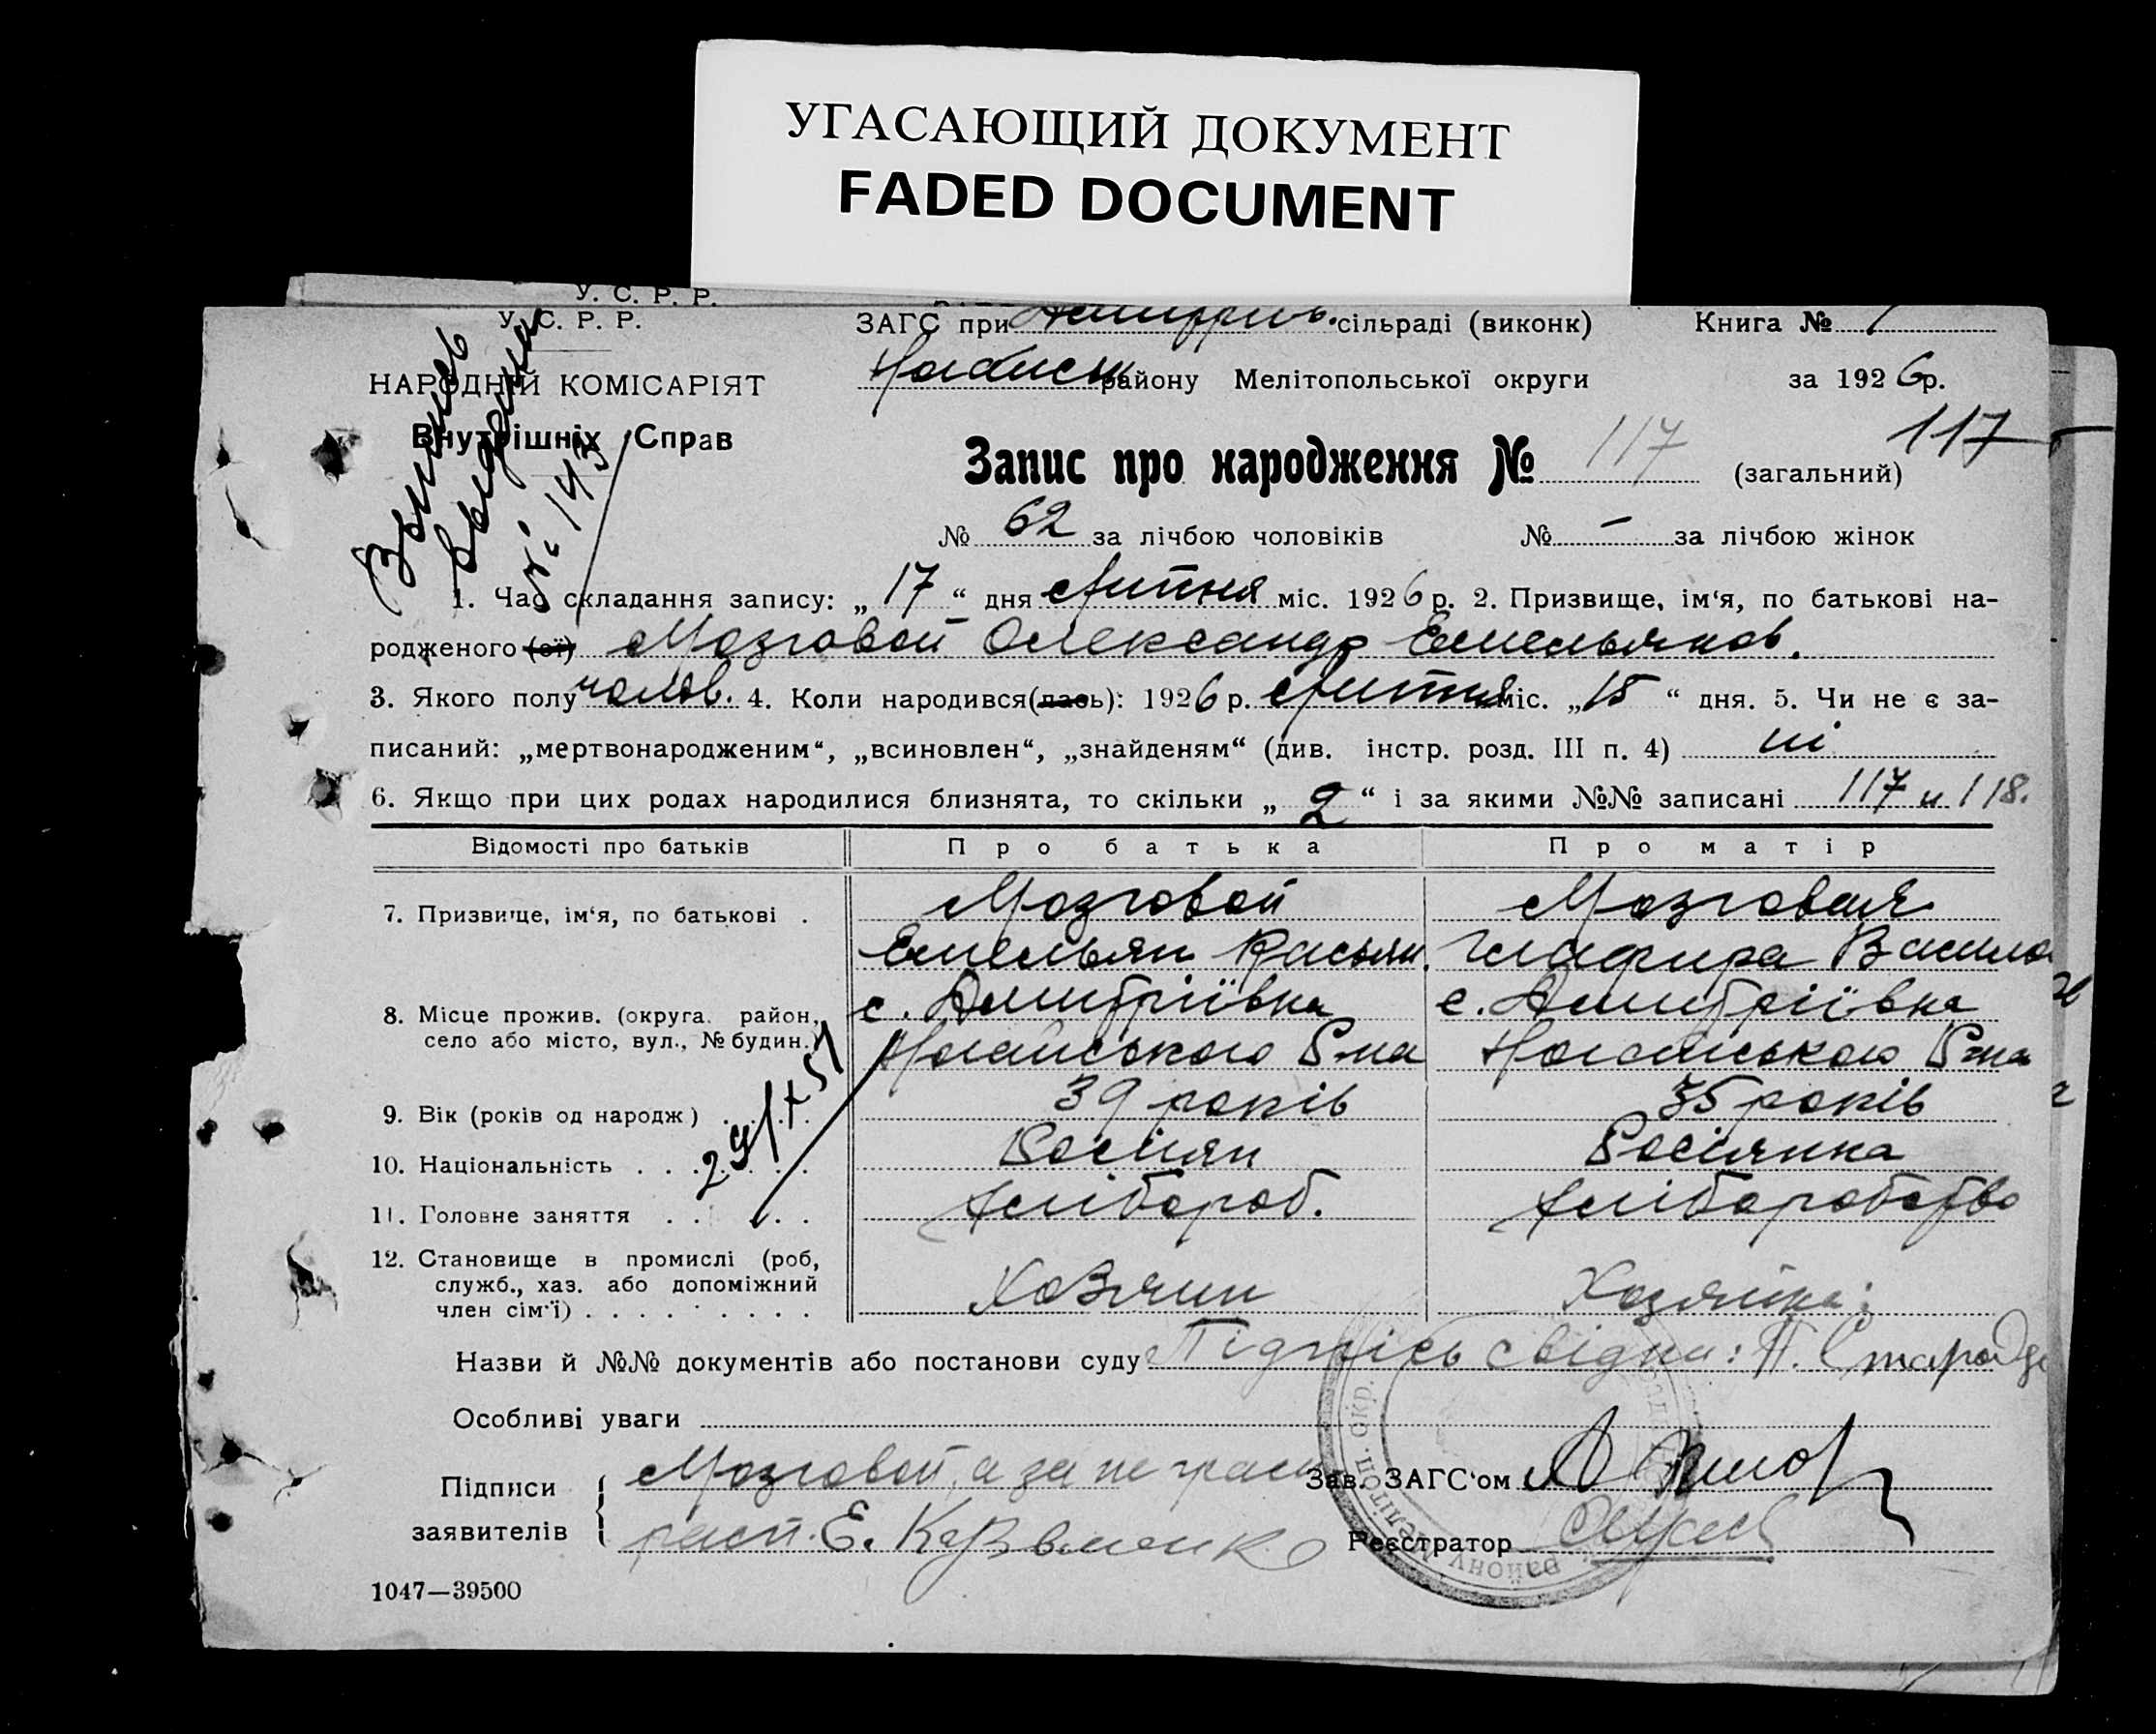 УГАСАЮЩИЙ ДОКУМЕНТ
FADED DOCUMENT
У. С. Р. Р.
У. С. Р. Р.
НАРОДНІЙ КОМІСАРІЯТ
Внутрішніх Справ
ЗАГС при сільраді (виконк)
району Мелітопольської округи
Книга №
за 1926р.
117
Запис про народження № 117 (загальний)
№ 62 за лічбою чоловіків № — за лічбою жінок
№ 143
1. Час складання запису: „ 17 “ дня Липня міс. 1926 р. 2. Призвище, ім‘я, по батькові на-
родженого (ої) Мозговой Олександр Емельянов.
3. Якого полу чолов. 4. Коли народився(лась): 1926 р. Липня міс. „15 “ дня. 5. Чи не є за-
писаний: „мертвонародженим“, „всиновлен“, „знайденям“ (див. інстр. розд. III п. 4) ні
6. Якщо при цих родах народилися близнята, то скільки „ 2 “ і за якими №№ записані 117 и 118.
Відомості про батьків Про батька Про матір
7. Призвище, ім‘я, по батькові . Мозговой Мозговая
Емельян Касьян. Глафира Васило
8. Місце прожив. (округа, район, с. Дмитріївка с. Дмитріївка
село або місто, вул., № будин.) Ногайського Р-на Ногайського Р-на
9. Вік (років од народж) . . . . 39 років 35 років
10. Національність . . . . . . Росіян Росіянка
11. Головне заняття . . . . . Хлібороб. Хліборобство
12. Становище в промислі (роб,
служб., хаз. або допоміжний
член сім‘ї) . . . . . . . . . Хозяин Хозяйка
Назви й №№ документів або постанови суду Підпісь свідки: П.
Особливі уваги
Підписи
заявителів
Мозговой, а за не грам
расп. Е. Кузьменко
Зав. ЗАГС‘ом
Реєстратор
1047—39500